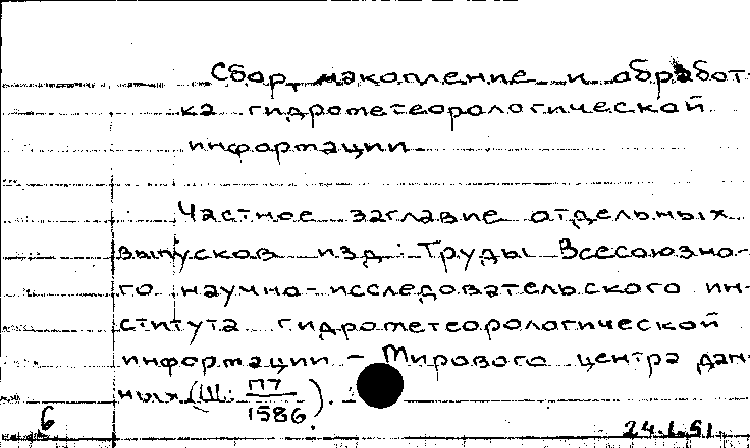 Сбор, накопление и обработ-
ка гидрометеорологической
информации.
Частное заглавие отдельных
выпусков изд.: Труды Всесоюзно-
го научно-исследовательского ин-
ститута гидрометеорологической
информации - Мирового центра дан-
ных (Ш: П7
1586).
6
24.I.91.